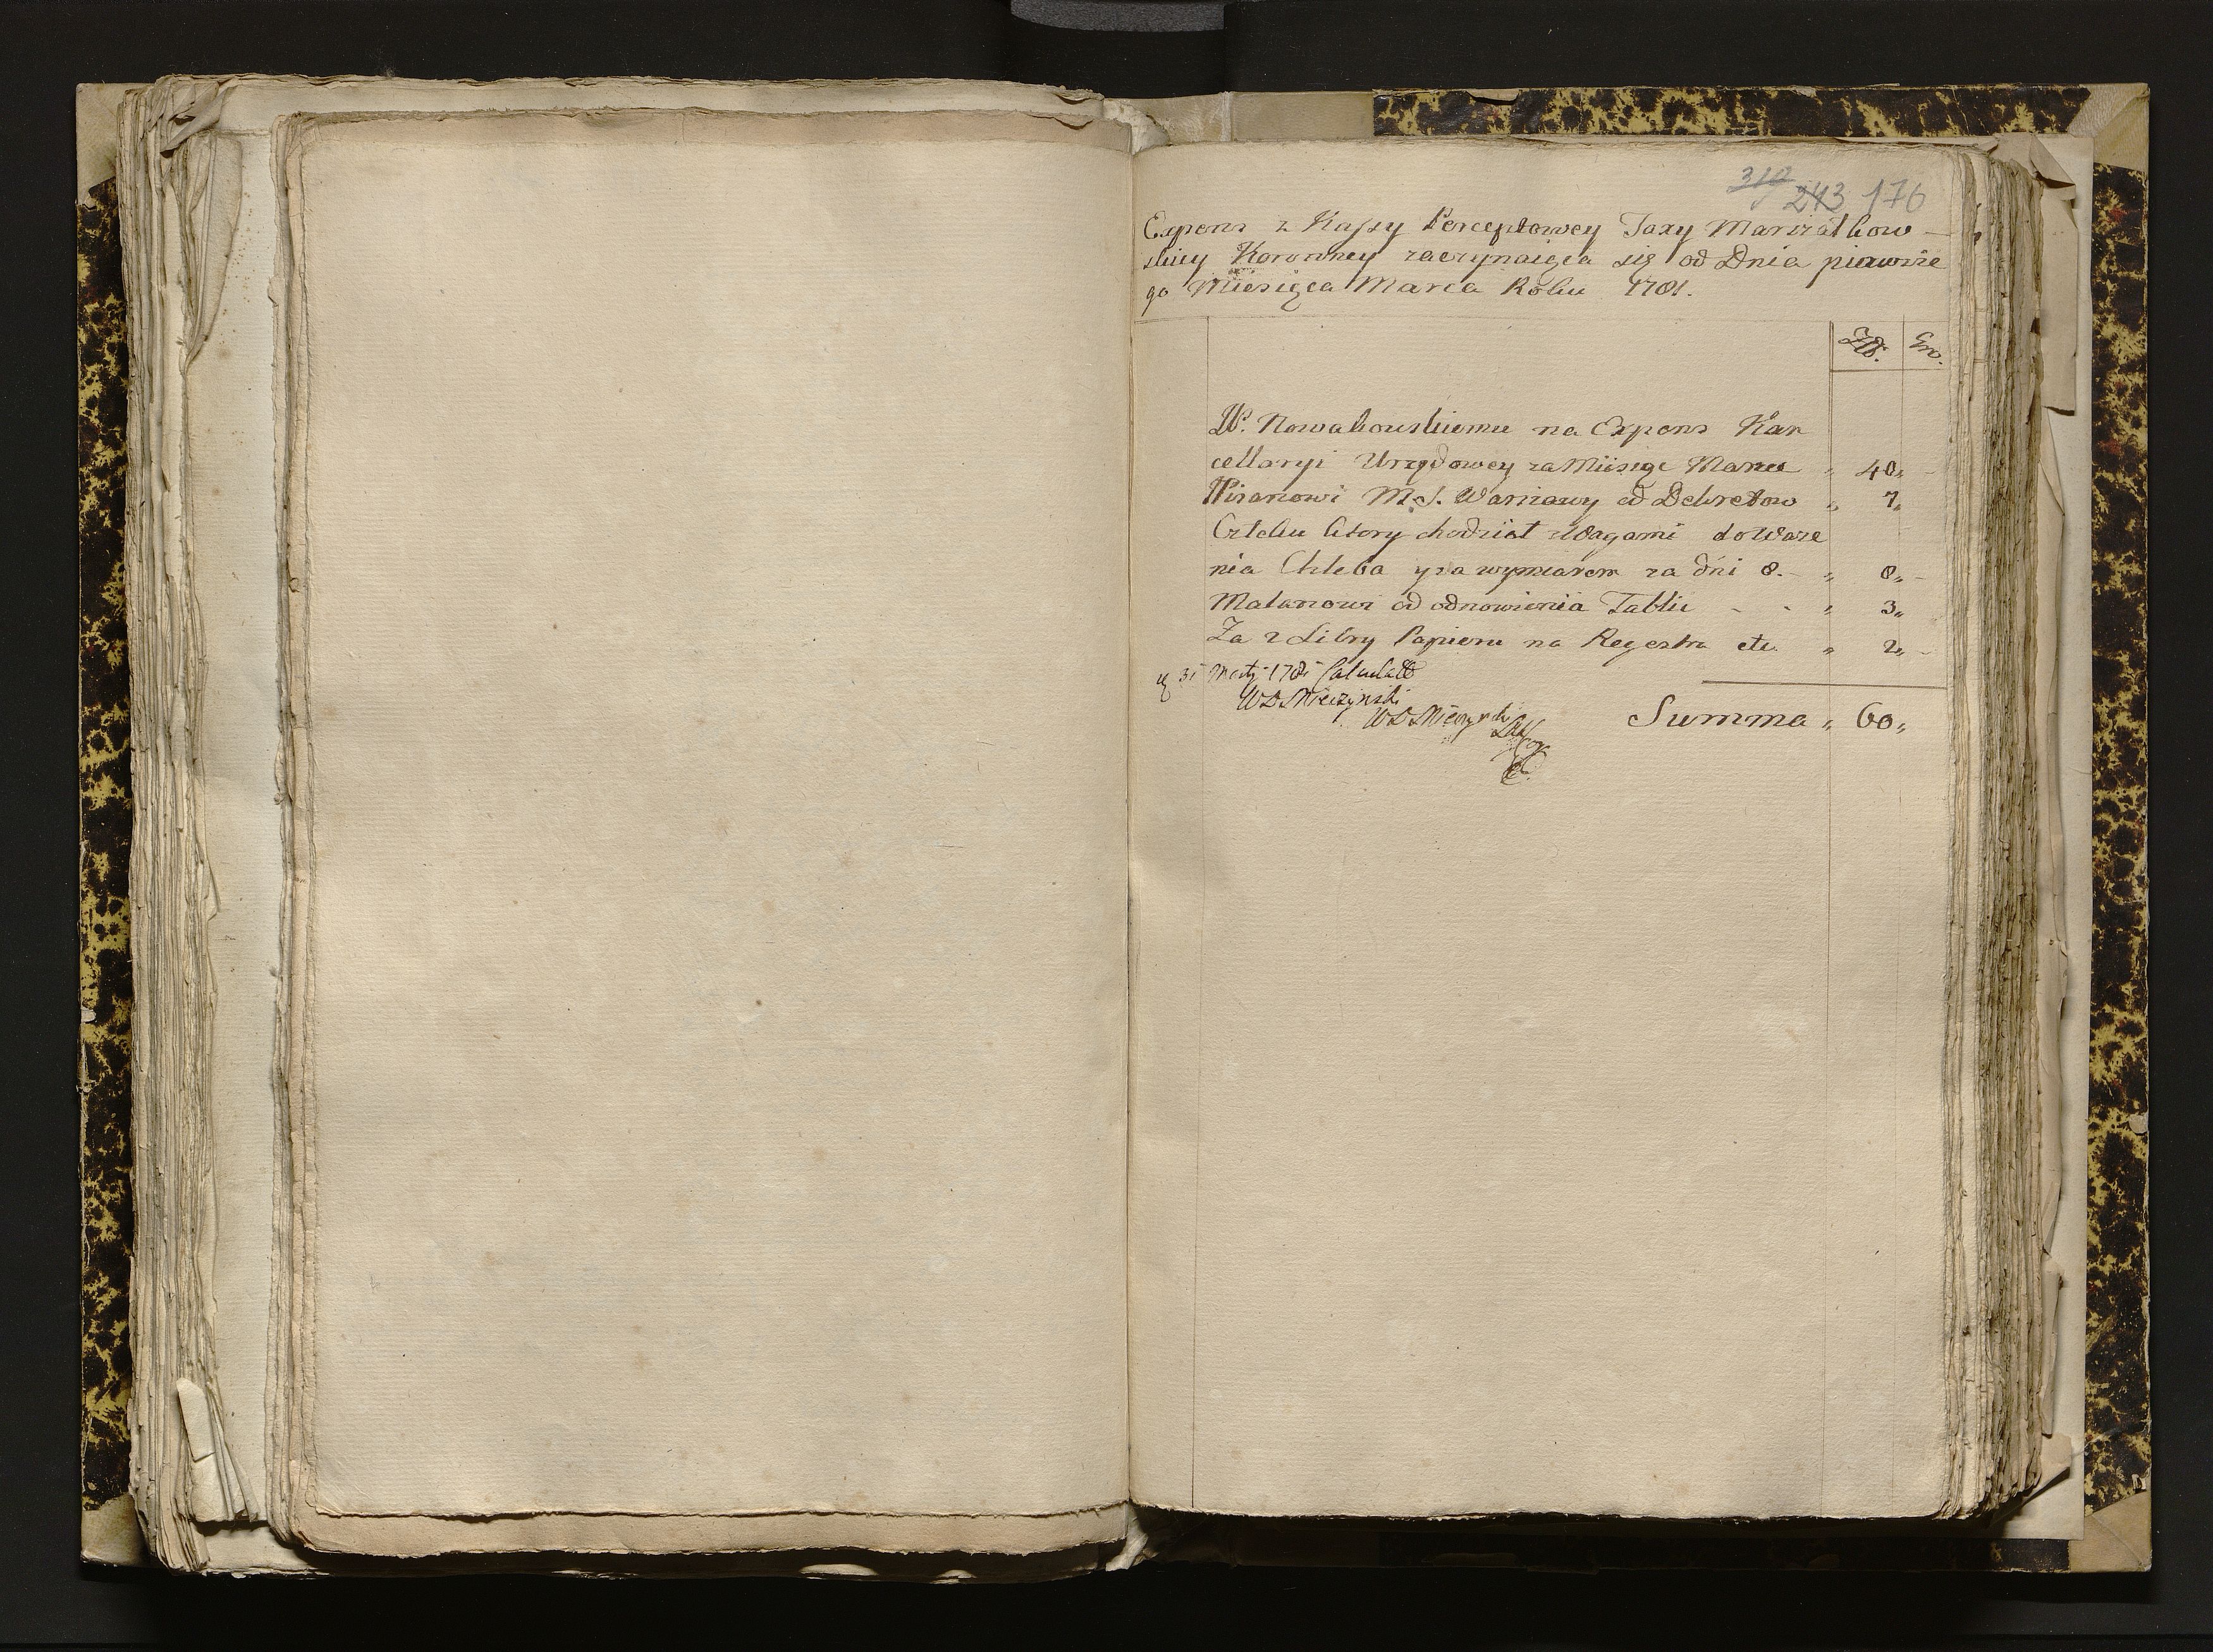 310 243 176
Expens z Kassy Perceptowey Taxy Marszałkow-
skiey Koronney zaczynaiąca się od Dnia pierwsze
go Miesiąca Marca Roku 1781.
Zł. Gro.
JP. Nowakowskiemu na Expens Kan
cellaryi Urzędowey za Miesiąc Marzec „ 40„ -
Pisarzowi M. S. Warszawy od Dekretow „ 7„
Człeku ktory chodził z Wagami do Waże
nia Chleba y za wymiarem za dni 8. - „ 8„ -
Malarzowi od odnowienia Tablic - - „ 3„
Za 2 Libry Papieru na Regestra etc. „ 2„ -
31 Martij 1781 Calculatt
WD Mieczynski
WD Mieczynski
Summa „ 60„